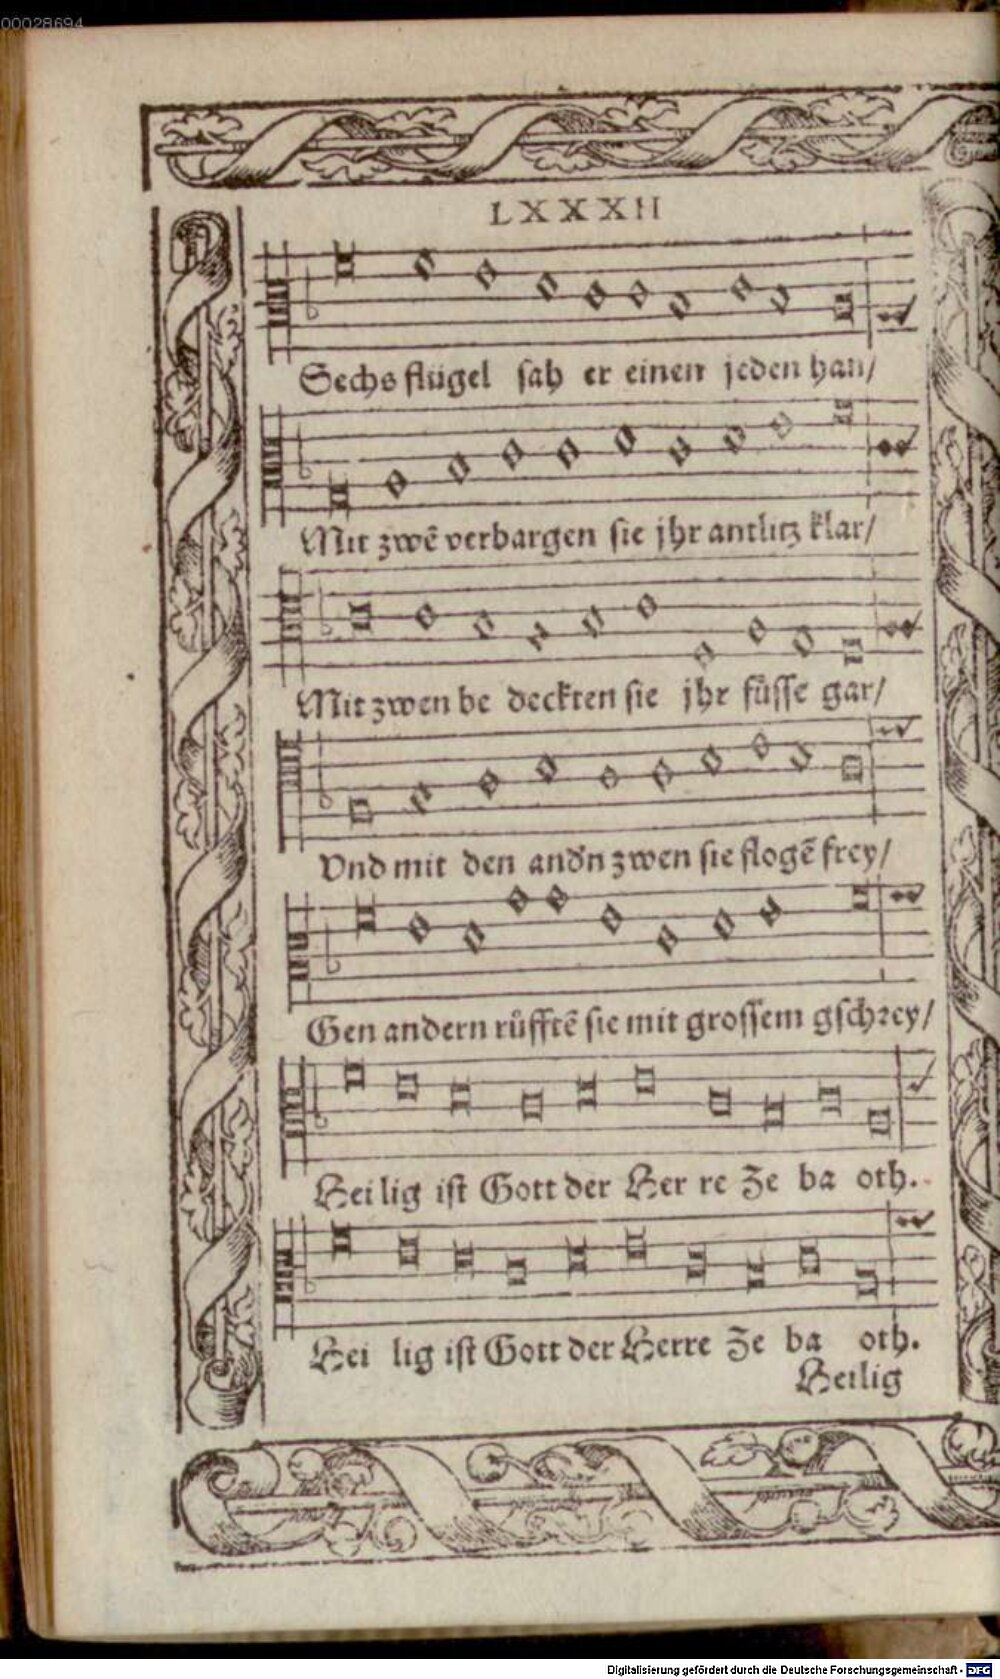 00028694
LXXXII
Sechs flügel sah er einen jeden han/
Mit zwē verbargen sie jhr antlitz klar/
Mit zwen be deckten sie jhr füsse gar/
Vnd mit den andn zwen sie flogē frey/
Gen andern růfftē sie mit grossem gschrey/
Hei lig ist Gott der Her re Ze ba oth.
Hei lig ist Gott der Herre Ze ba oth.
Heilig
Digitalisierung gefördert durch die Deutsche Forschungsgemeinschaft - DFG